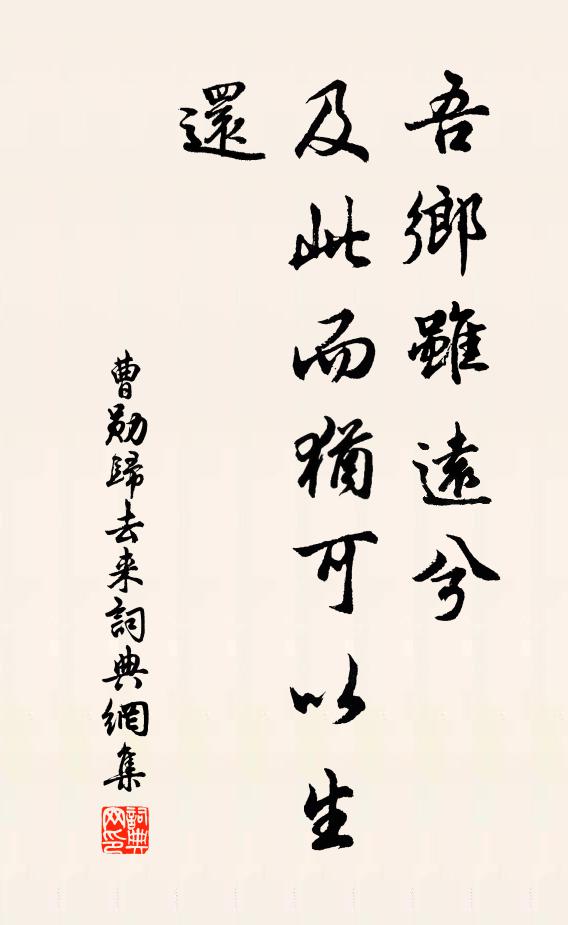 吾鄉雖遠兮
及此而猶可以生
還
曹勛歸去来詞典網集
詞典
网印